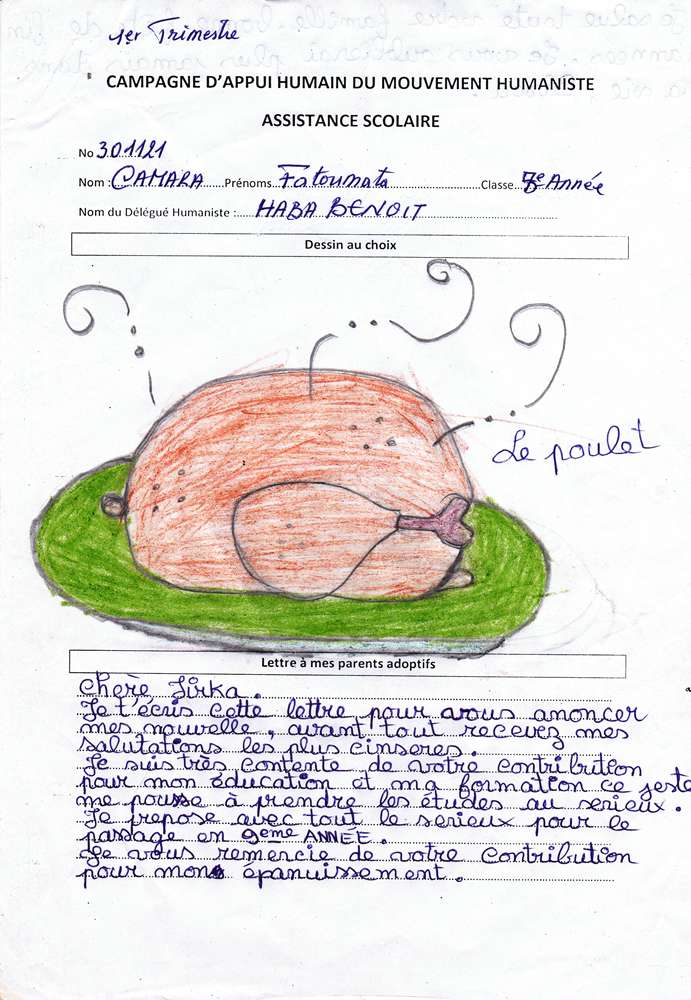 1er Trimestre
CAMPAGNE D'APPUI HUMAIN DU MOUVEMENT HUMANISTE
ASSISTANCE SCOLAIRE
No 301121
Nom : CAMARA Prénoms Fatoumata Classe Année
Nom du Délégué Humaniste : HABA BENOIT
Dessin au choix
Le poulet
Lettre à mes parents adoptifs
Chère Jirka.
Je t'écris cette lettre pour avous anoncer
mes nouvelle, avant tout recevez mes
salutations les plus cinseres.
Je suis très contente de votre contribution
pour mon éducation et ma formation ce jeste
me pousse à prendre les études au serieux.
Je prepose avec tout le serieux pour le
passage en 9eme ANNEE.
Je vous remercie de votre contribution
pour mon épanuissement.